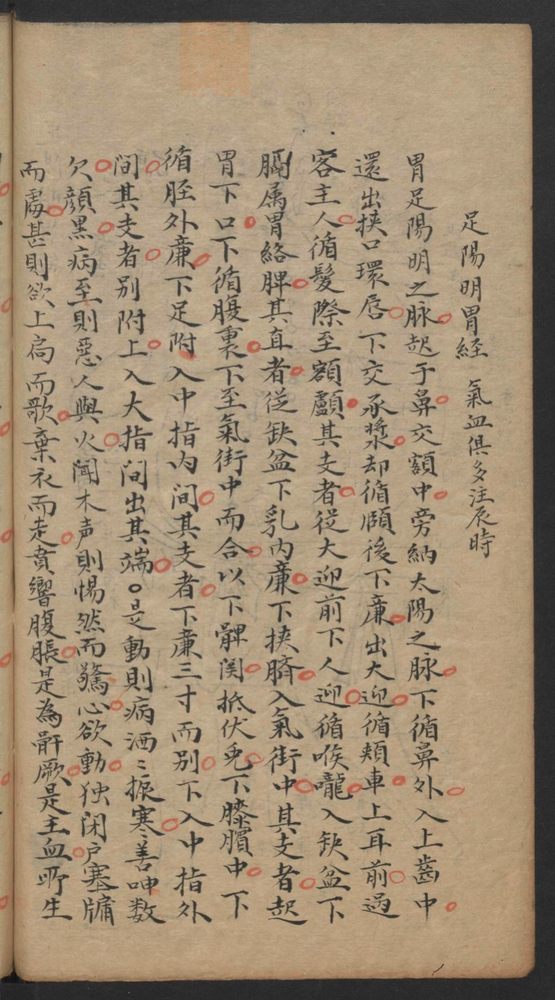 足陽明胃經　氣血俱多注辰時
胃足陽明之脉起于鼻交額中旁納太陽之脉下循鼻外入上齒中
還出挾口環唇下交承漿却循頤後下廉出大迎循頰車上耳前過
客主人循髮際至額顱其支者從大迎前下人迎循喉嚨入缺盆下
膈属胃絡脾其直者從缺盆下乳内廉下挾臍入氣街中其支者起
胃下口下循腹裏下至氣街中而合以下髀関抵伏兔下膝臏中下
循胫外廉下足附入中指内間其支者下廉三寸而别下入中指外
間其支者别附上入大指間出其端○是動則病洒〻振寒善呻数
欠顔黑病至則惡人與火闻木声則惕然而驚心欲動独闭户塞牖
而處甚則欲上高而歌棄衣而走賁響腹脹是為骭厥是主血所生